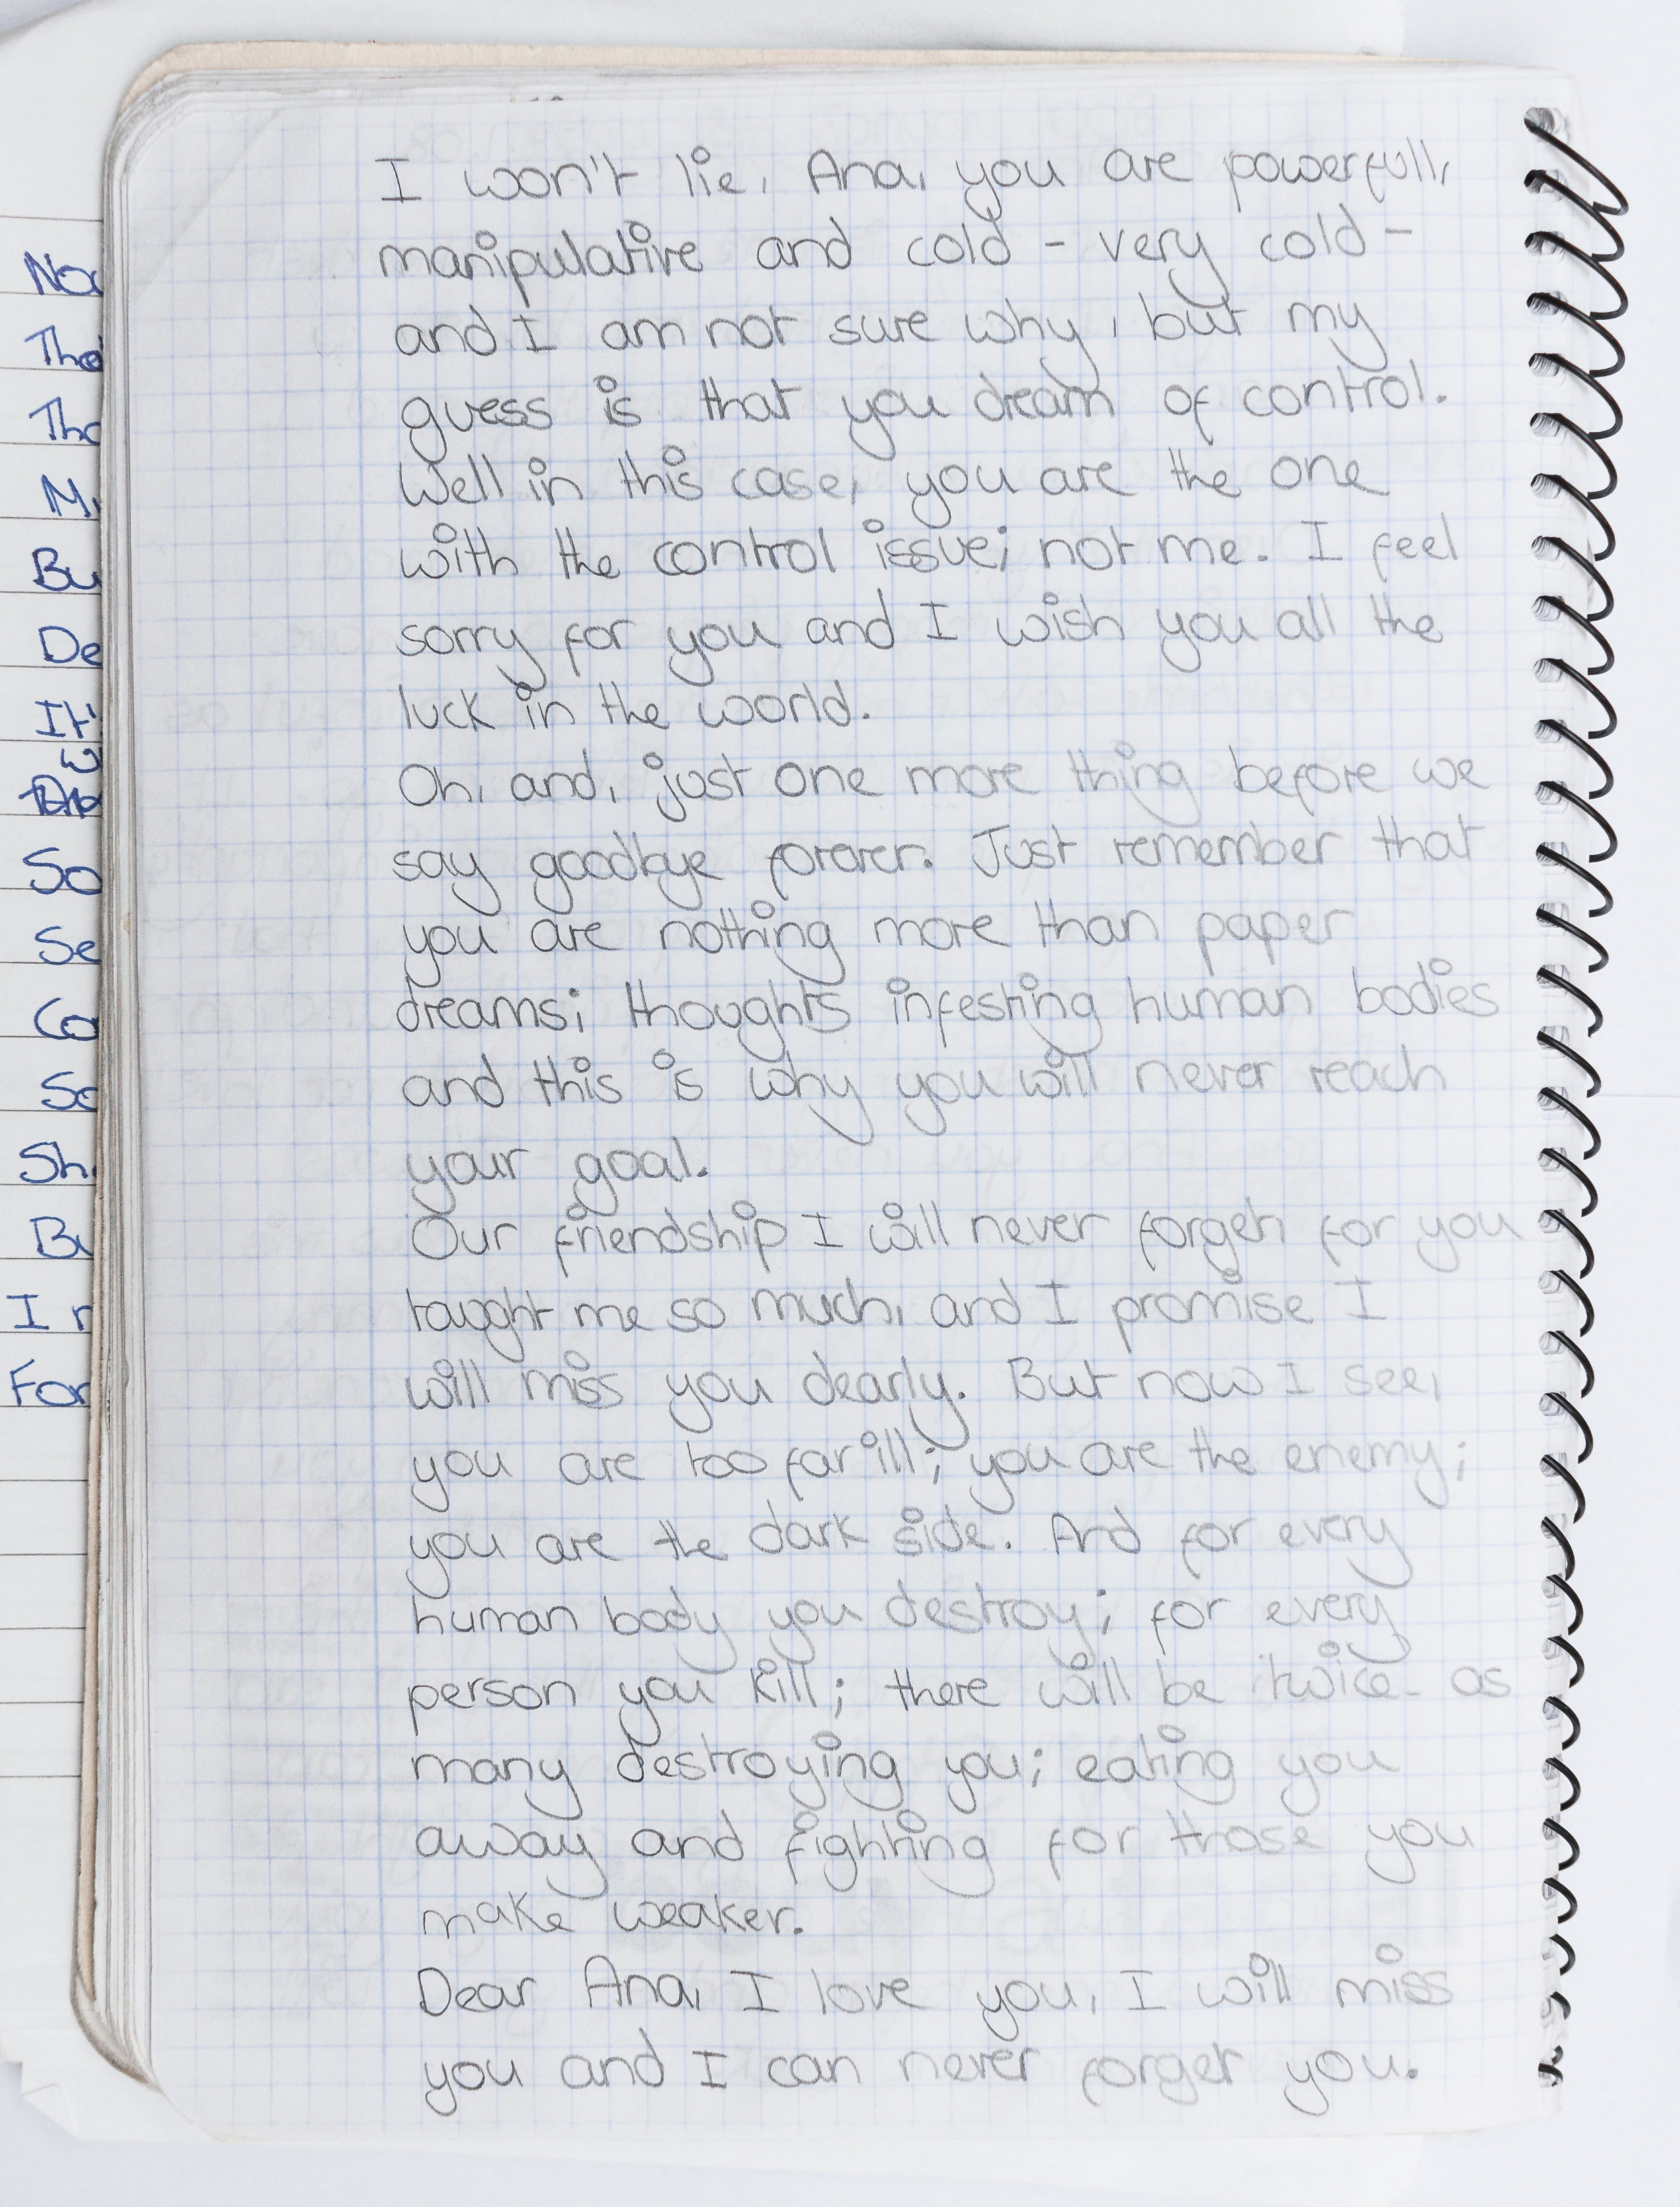 I won't lie, Ana, you are powerfull,
manipulative and cold - very cold -
and I am not sure why, but my
guess is that you dream of control.
Well in this case, you are the one
with the control issue; not me. I feel
sorry for you and I wish you all the
luck in the world.
Oh, and, just one more thing before we
say goodbye forever. Just remember that
you are nothing more than paper
dreams; thoughts infesting human bodies
and this is why you will never reach
your goal.
Our friendship I will never forget, for you
taught me so much, and I promise I
will miss you dearly. But now I see,
you are too far ill; you are the enemy;
you are the dark side. And for every
human body you destroy; for every
person you kill; there will be twice as
many destroying you; eating you
away and fighting for those you
make weaker.
Dear Ana, I love you, I will miss
you and I can never forget you.
No
Tho
M
Bu
De
It'
w
So
Se
Co
So
Sh
Bu
I r
For